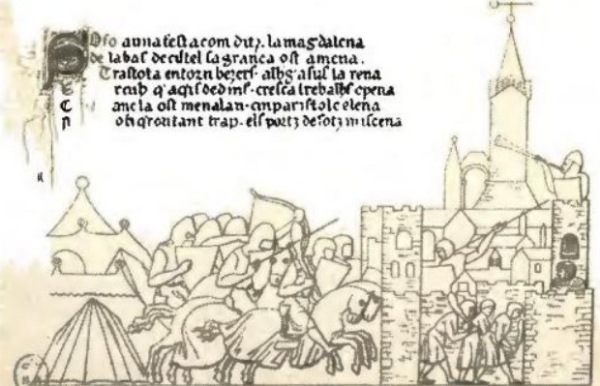 So fo a una festa com ditz. la magdalena
de labas de cistel sa granda ost amena.
Trastota entorn bezers. albga sus la rena
dedins. cresca l trebalhs e pena
anc la ost menalau. cui paris tolc elena
tant trap. els portz desotz miscena